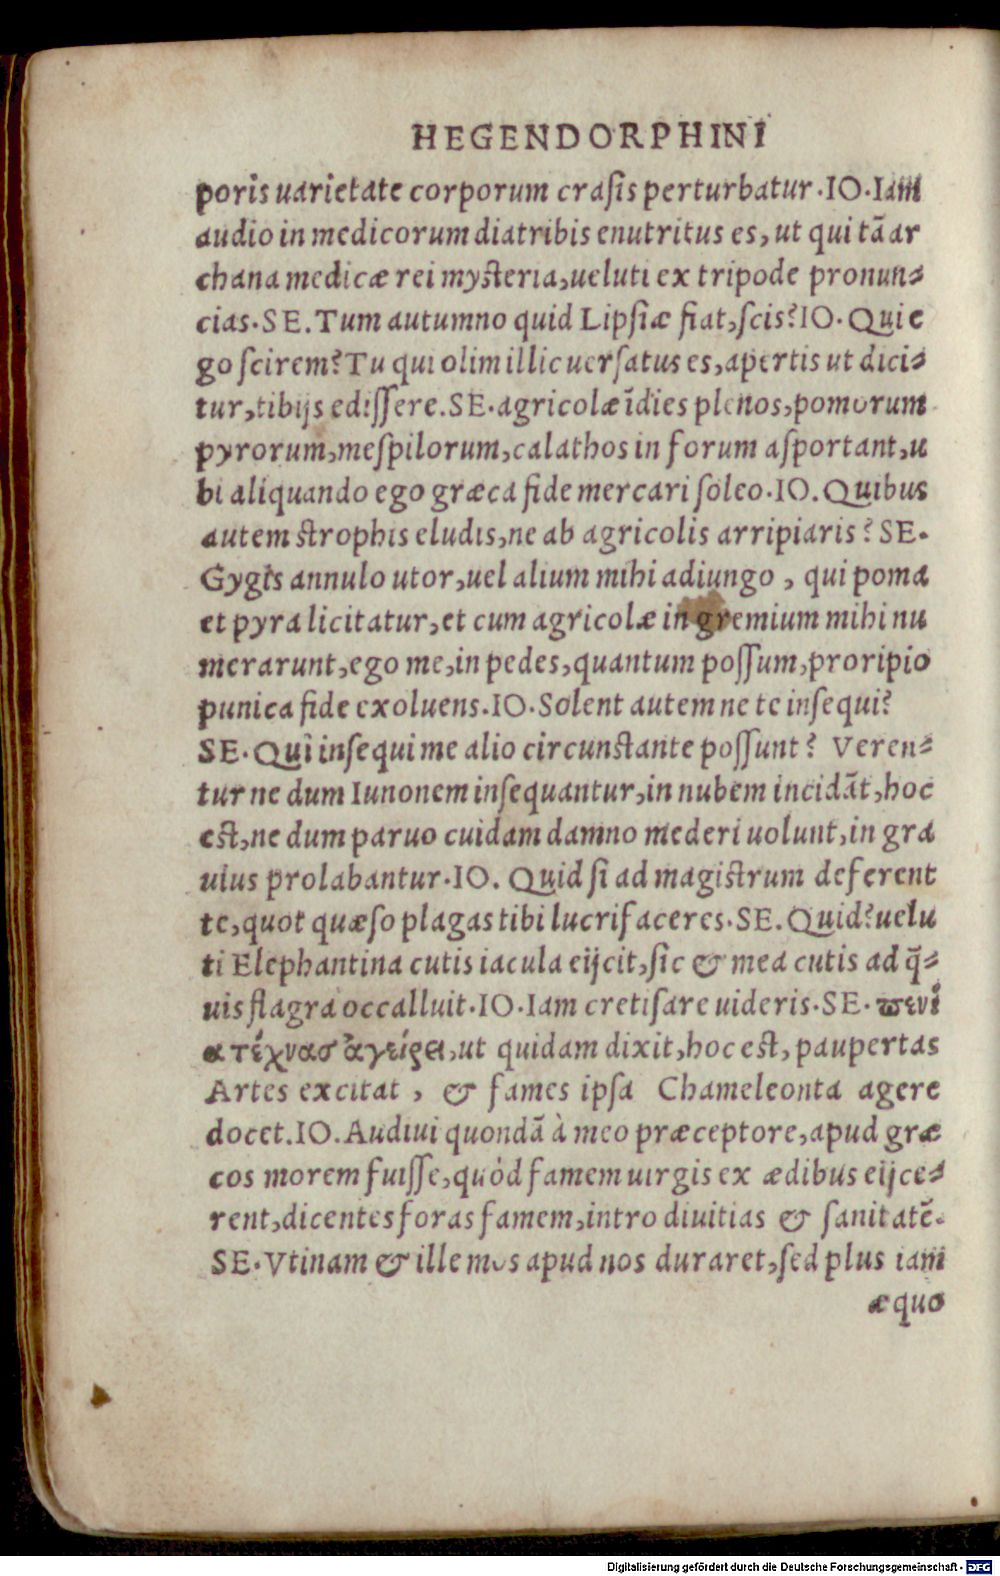 HEGENDORPHINI
poris uarietate corporum crasis perturbatur.IO.Iam
audio in medicorum diatribis enutritus es, ut qui tā ar
chana medicæ rei mysteria, ueluti ex tripode pronun⸗
cias.SE.Tum autumno quid Lipsiæ fiat, scis? IO. Qui e
go scirem? Tu qui olim illic uersatus es, apertis ut dici⸗
tur, tibijs edissere.SE.agricolæ īdies plenos, pomorum
pyrorum, mespilorum, calathos in forum asportant, u
bi aliquando ego græca fide mercari soleo.IO. Quibus
autem strophis eludis, ne ab agricolis arripiaris? SE.
Gygis annulo utor, uel alium mihi adiungo, qui poma
et pyra licitatur, et cum agricolæ in gremium mihi nu
merarunt, ego me, in pedes, quantum possum, proripio
punica fide exoluens.IO.Solent autem ne te insequi?
SE. Qui insequi me alio circunstante possunt? Veren⸗
tur ne dum Iunonem insequantur, in nubem incidāt, hoc
est, ne dum paruo cuidam damno mederi uolunt, in gra
uius prolabantur.IO. Quid si ad magistrum deferent
te, quot quæso plagas tibi lucrifaceres.SE. Quid? uelu
ti Elephantina cutis iacula eijcit, sic & mea cutis ad q̄⸗
uis flagra occalluit.IO.Iam cretisare uideris.SE. πενί
α τέχνασ ἀγείρει, ut quidam dixit, hoc est, paupertas
Artes excitat, & fames ipsa Chameleonta agere
docet.IO.Audiui quondā à meo præceptore, apud græ
cos morem fuisse, quòd famem uirgis ex ædibus eijce⸗
rent, dicentes foras famem, intro diuitias & sanitatē.
SE.Vtinam & ille mos apud nos duraret, sed plus iam
æquo
Digitalisierung gefördert durch die Deutsche Forschungsgemeinschaft - DFG